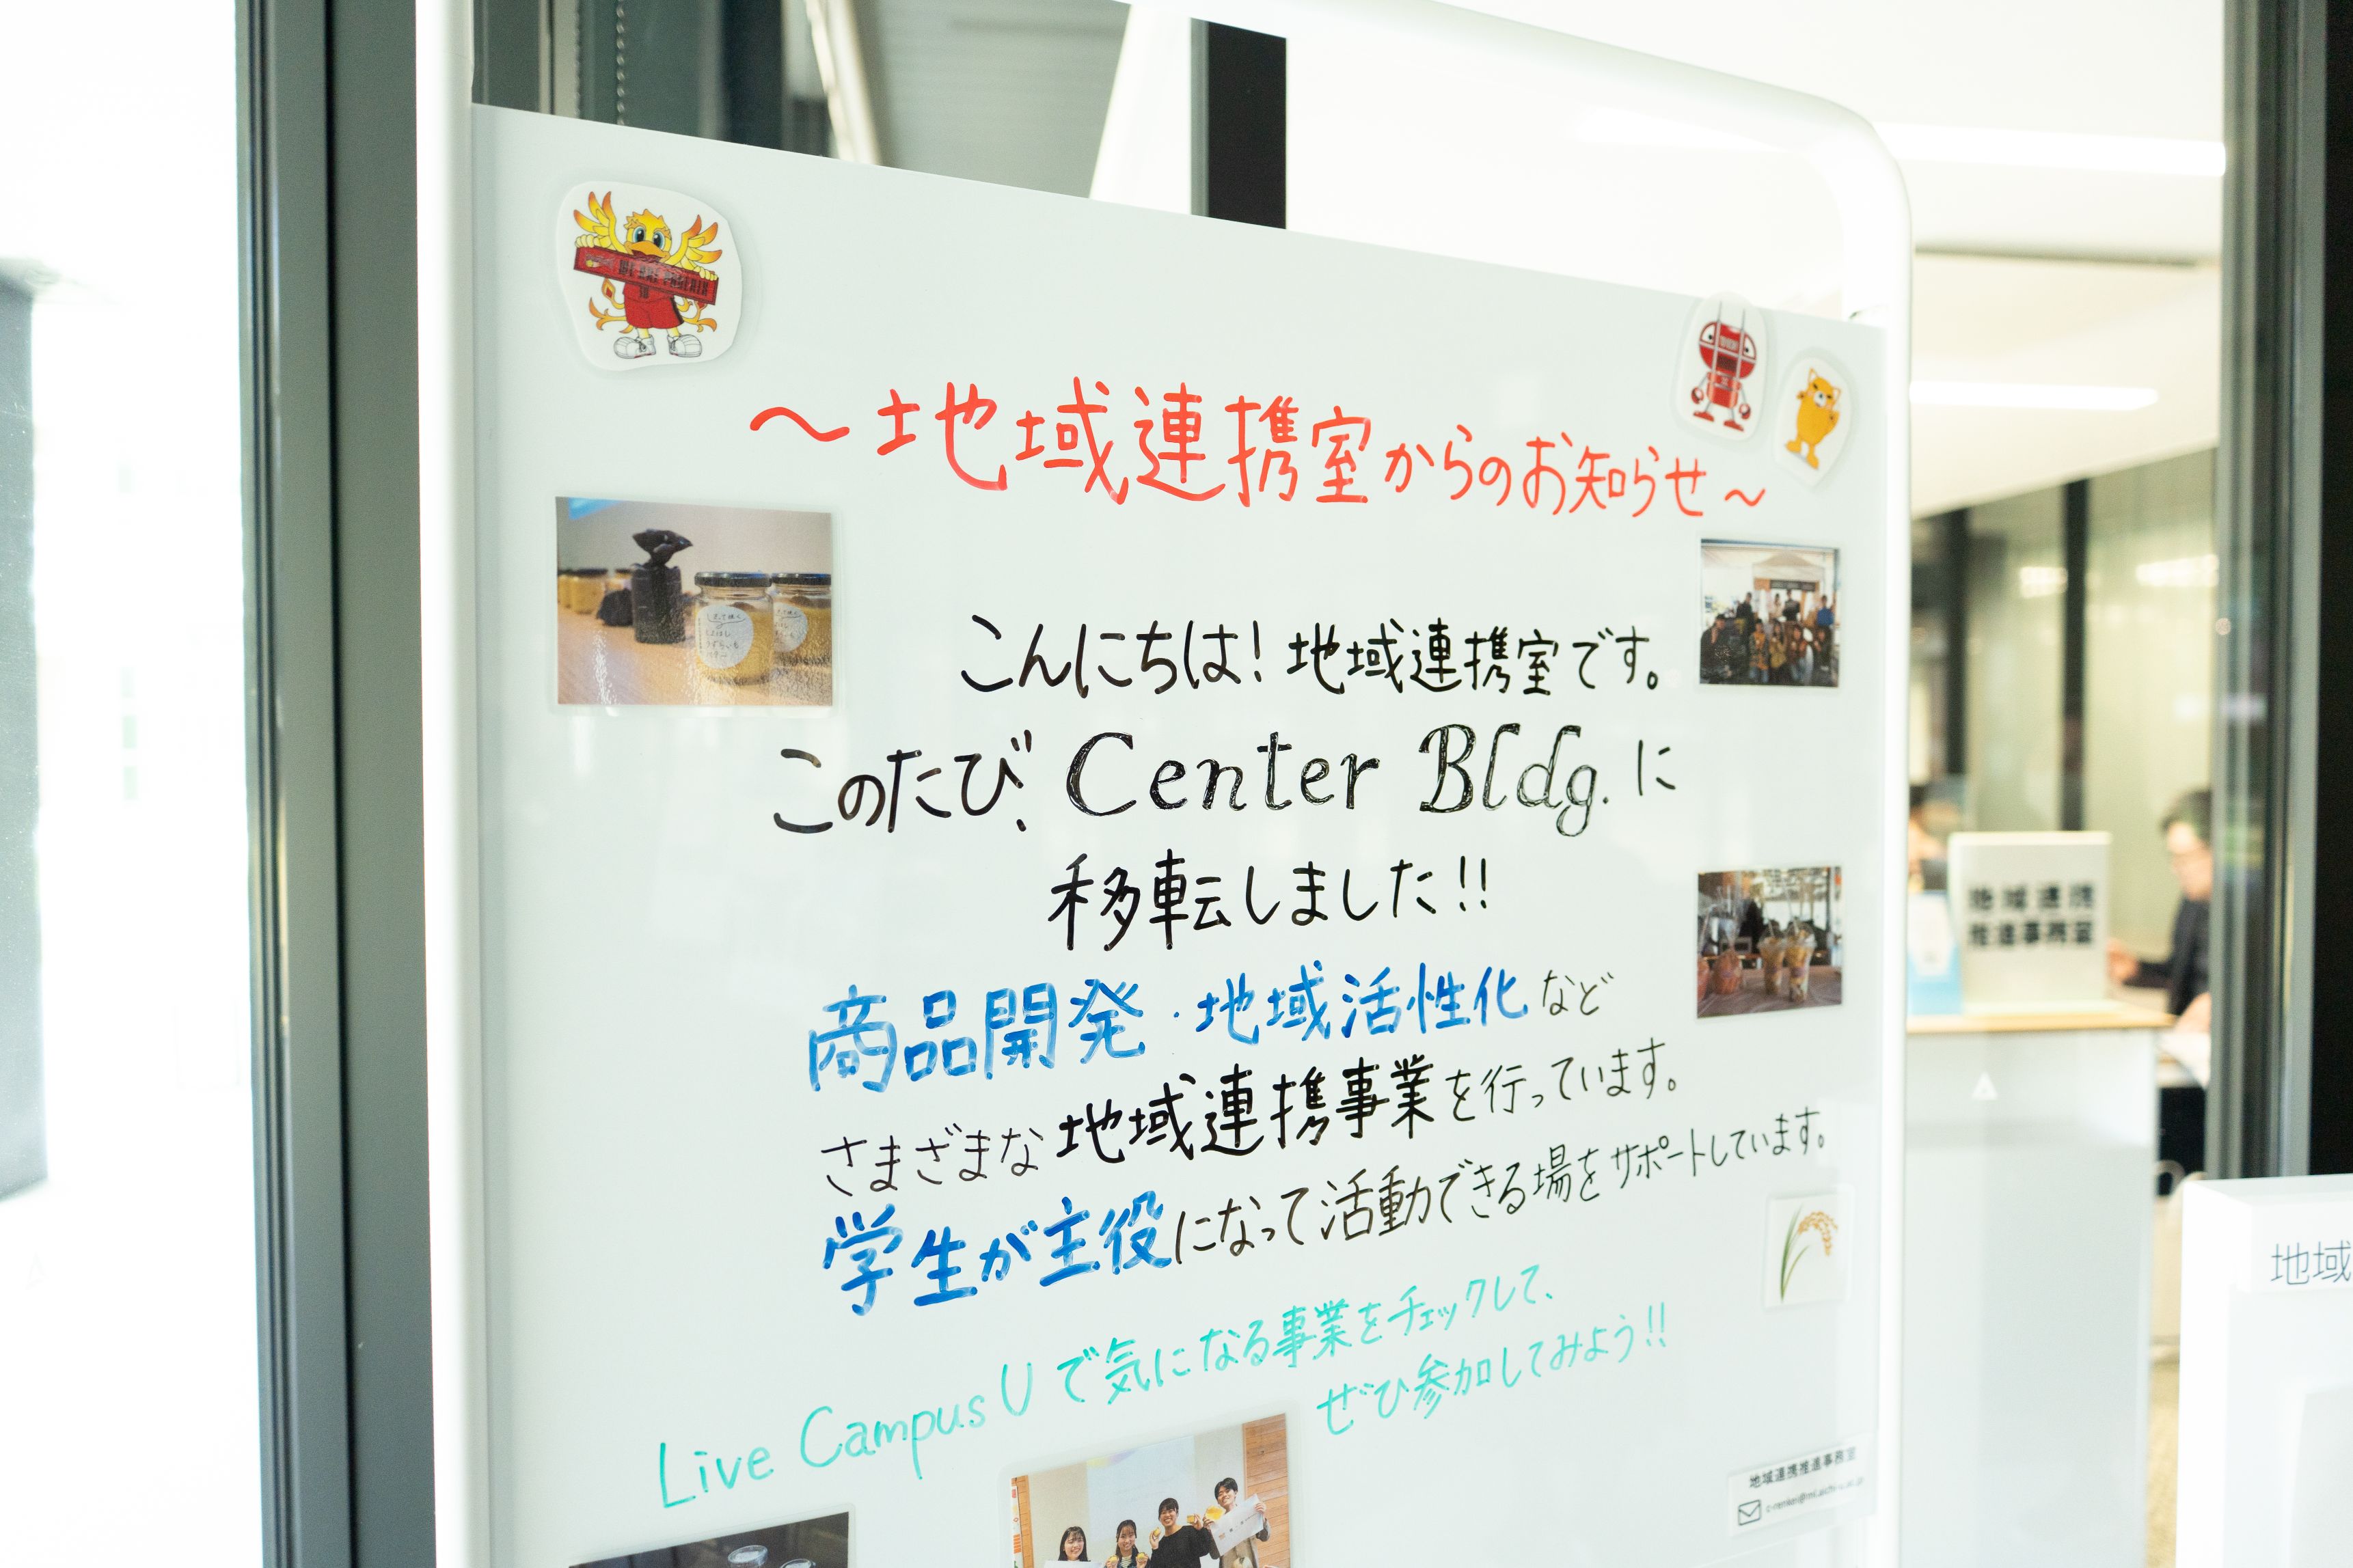 WE ARE PHOENIX
～地域連携室からのお知らせ～
こんにちは！地域連携室です。
このたび、Center Bldg.に
移転しました!!
商品開発・地域活性化など
さまざまな地域連携事業を行っています。
学生が主役になって活動できる場をサポートしています。
Live Campus U で気になる事業をチェックして、
ぜひ参加してみよう!!
地域連携推進事務室
地域連携
推進事務室
地域